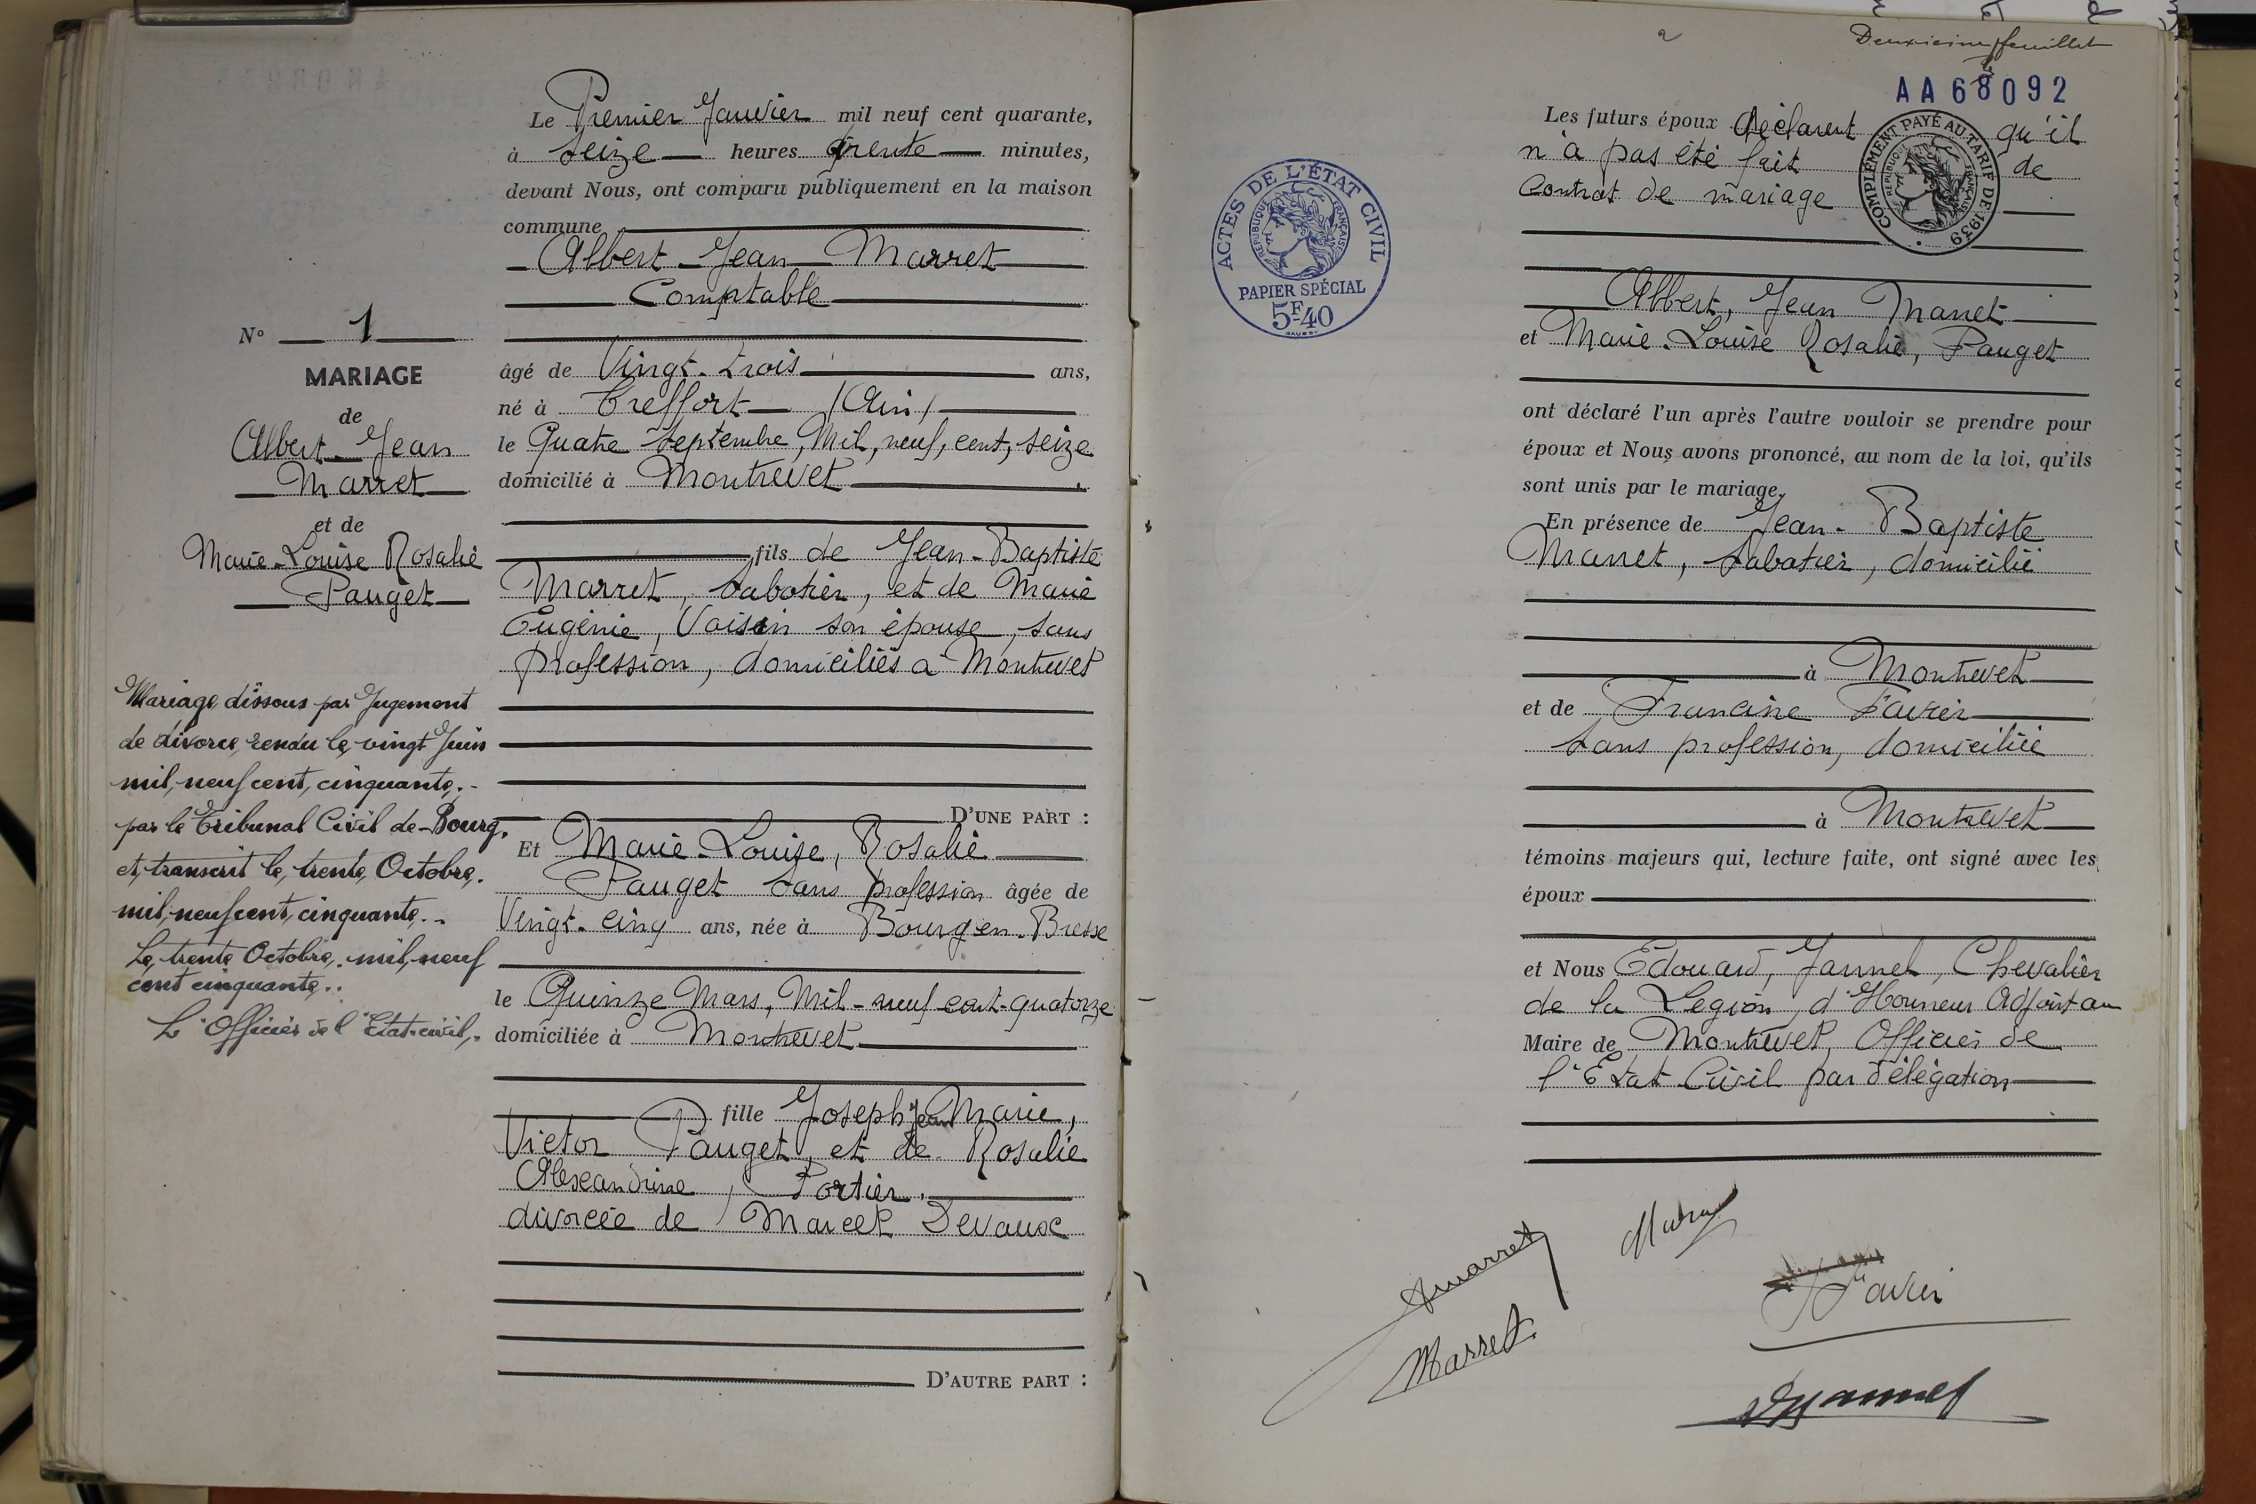 N° 1
MARIAGE
de
Albert Jean
Marret
et de
Marie-Louise Rosalie
Pauget
Mariage dissous par Jugement
de divorce, rendu le, vingt Juin
mil, neuf cent, cinquante.-
par le Tribunal Civil de-Bourg.
et, transcrit le, trente, Octobre,.
mil, neuf cent, cinquante.-
Le, trente Octobre,. mil, neuf
cent cinquante..
L'Officier de l'Etat-civil,.
Le Premier Janvier mil neuf cent quarante,
à seize heures trente minutes,
devant Nous, ont comparu publiquement en la maison
commune
Albert Jean Marret
Comptable
âgé de Vingt-Trois ans,
né à Treffort (Ain)
le Quatre Septembre, Mil, neuf, cent, seize
domicilié à Montrevel
fils de Jean-Baptiste
Marret, sabotier, et de Marie
Eugénie, Voisin son épouse, sans
profession, domiciliés à Montrevel
D'UNE PART :
Et Marie-Louise, Rosalie
Pauget sans profession âgée de
Vingt-cinq ans, née à Bourg-en-Bresse
le Quinze Mars, Mil-neuf-cent-quatorze
domiciliée à Montrevel
fille Joseph Jean Marie,
Victor Pauget, et de Rosalie
Alexandrine, Portier.
divorcée de Marcel Devaux
D'AUTRE PART :
2
Deuxième feuillet
AA 68092
ACTES DE L'ÉTAT CIVIL
RÉPUBLIQUE FRANÇAISE
PAPIER SPÉCIAL
5F40
COMPLÉMENT PAYÉ AU TARIF DE 1939
RÉPUBLIQUE FRANÇAISE
Les futurs époux déclarent qu'il
n'a pas été fait de
contrat de mariage
Albert, Jean Marret
et Marie-Louise Rosalie, Pauget
ont déclaré l'un après l'autre vouloir se prendre pour
époux et Nous avons prononcé, au nom de la loi, qu'ils
sont unis par le mariage.
En présence de Jean-Baptiste
Marret, sabotier, domicilié
à Montrevel
et de Francine Favier
sans profession, domiciliée
à Montrevel
témoins majeurs qui, lecture faite, ont signé avec les
époux
et Nous Edouard, Jannel, Chevalier
de la Légion, d'Honneur Adjoint au
Maire de Montrevel, Officier de
l'Etat Civil par délégation
Marret
Favier
Marret
Jannel